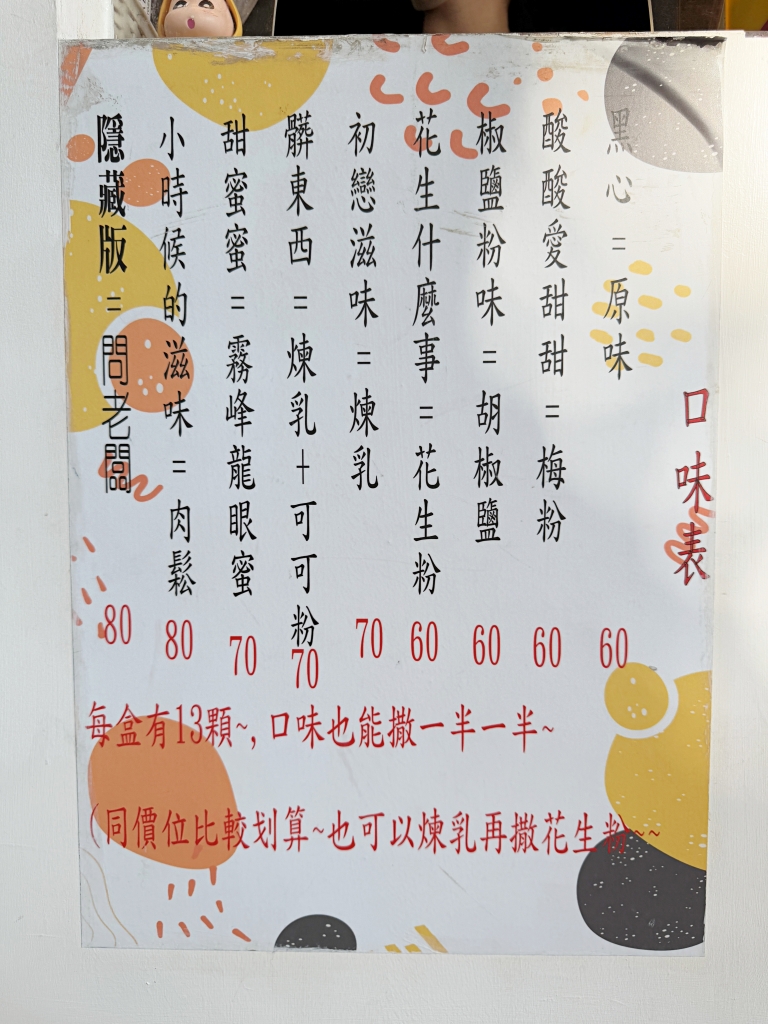 口味表
黑心=原味 60
酸酸愛甜甜=梅粉 60
椒鹽粉味=胡椒鹽 60
花生什麼事=花生粉 60
初戀滋味=煉乳 70
髒東西=煉乳+可可粉 70
甜蜜蜜=霧峰龍眼蜜 70
小時候的滋味=肉鬆 80
隱藏版=問老闆 80
每盒有13顆~,口味也能撒一半一半~
(同價位比較划算~也可以煉乳再撒花生粉~~